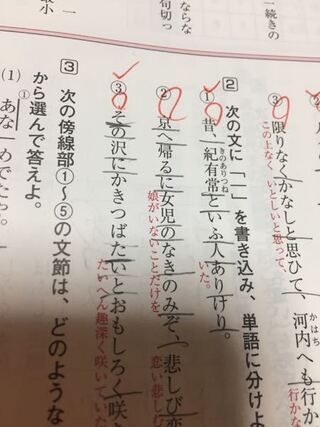 一続きの
ならな
句切っ
③限りなくかなしと思ひて、河内へも行か
かはち
この上なく、いとしいと思って、
行かな
２ 次の文に「―」を書き込み、単語に分けよ
①昔、紀有常といふ人ありけり。
きのありつね
いた。
②京へ帰るに女児のなきのみぞ、悲しび恋
娘がいないことだけを
恋い悲しむ
③その沢にかきつばたいとおもしろく咲き
たいへん趣深く咲いていた
３ 次の傍線部①～⑤の文節は、どのような
から選んで答えよ。
(1)
①
あなめでたや。